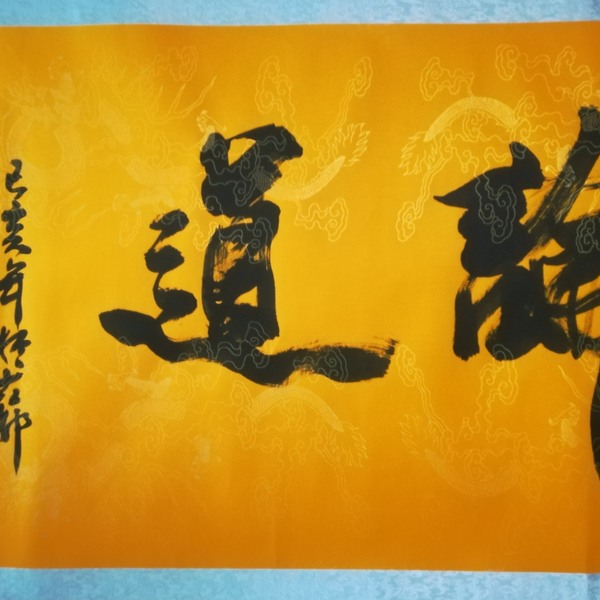 静道
己亥年